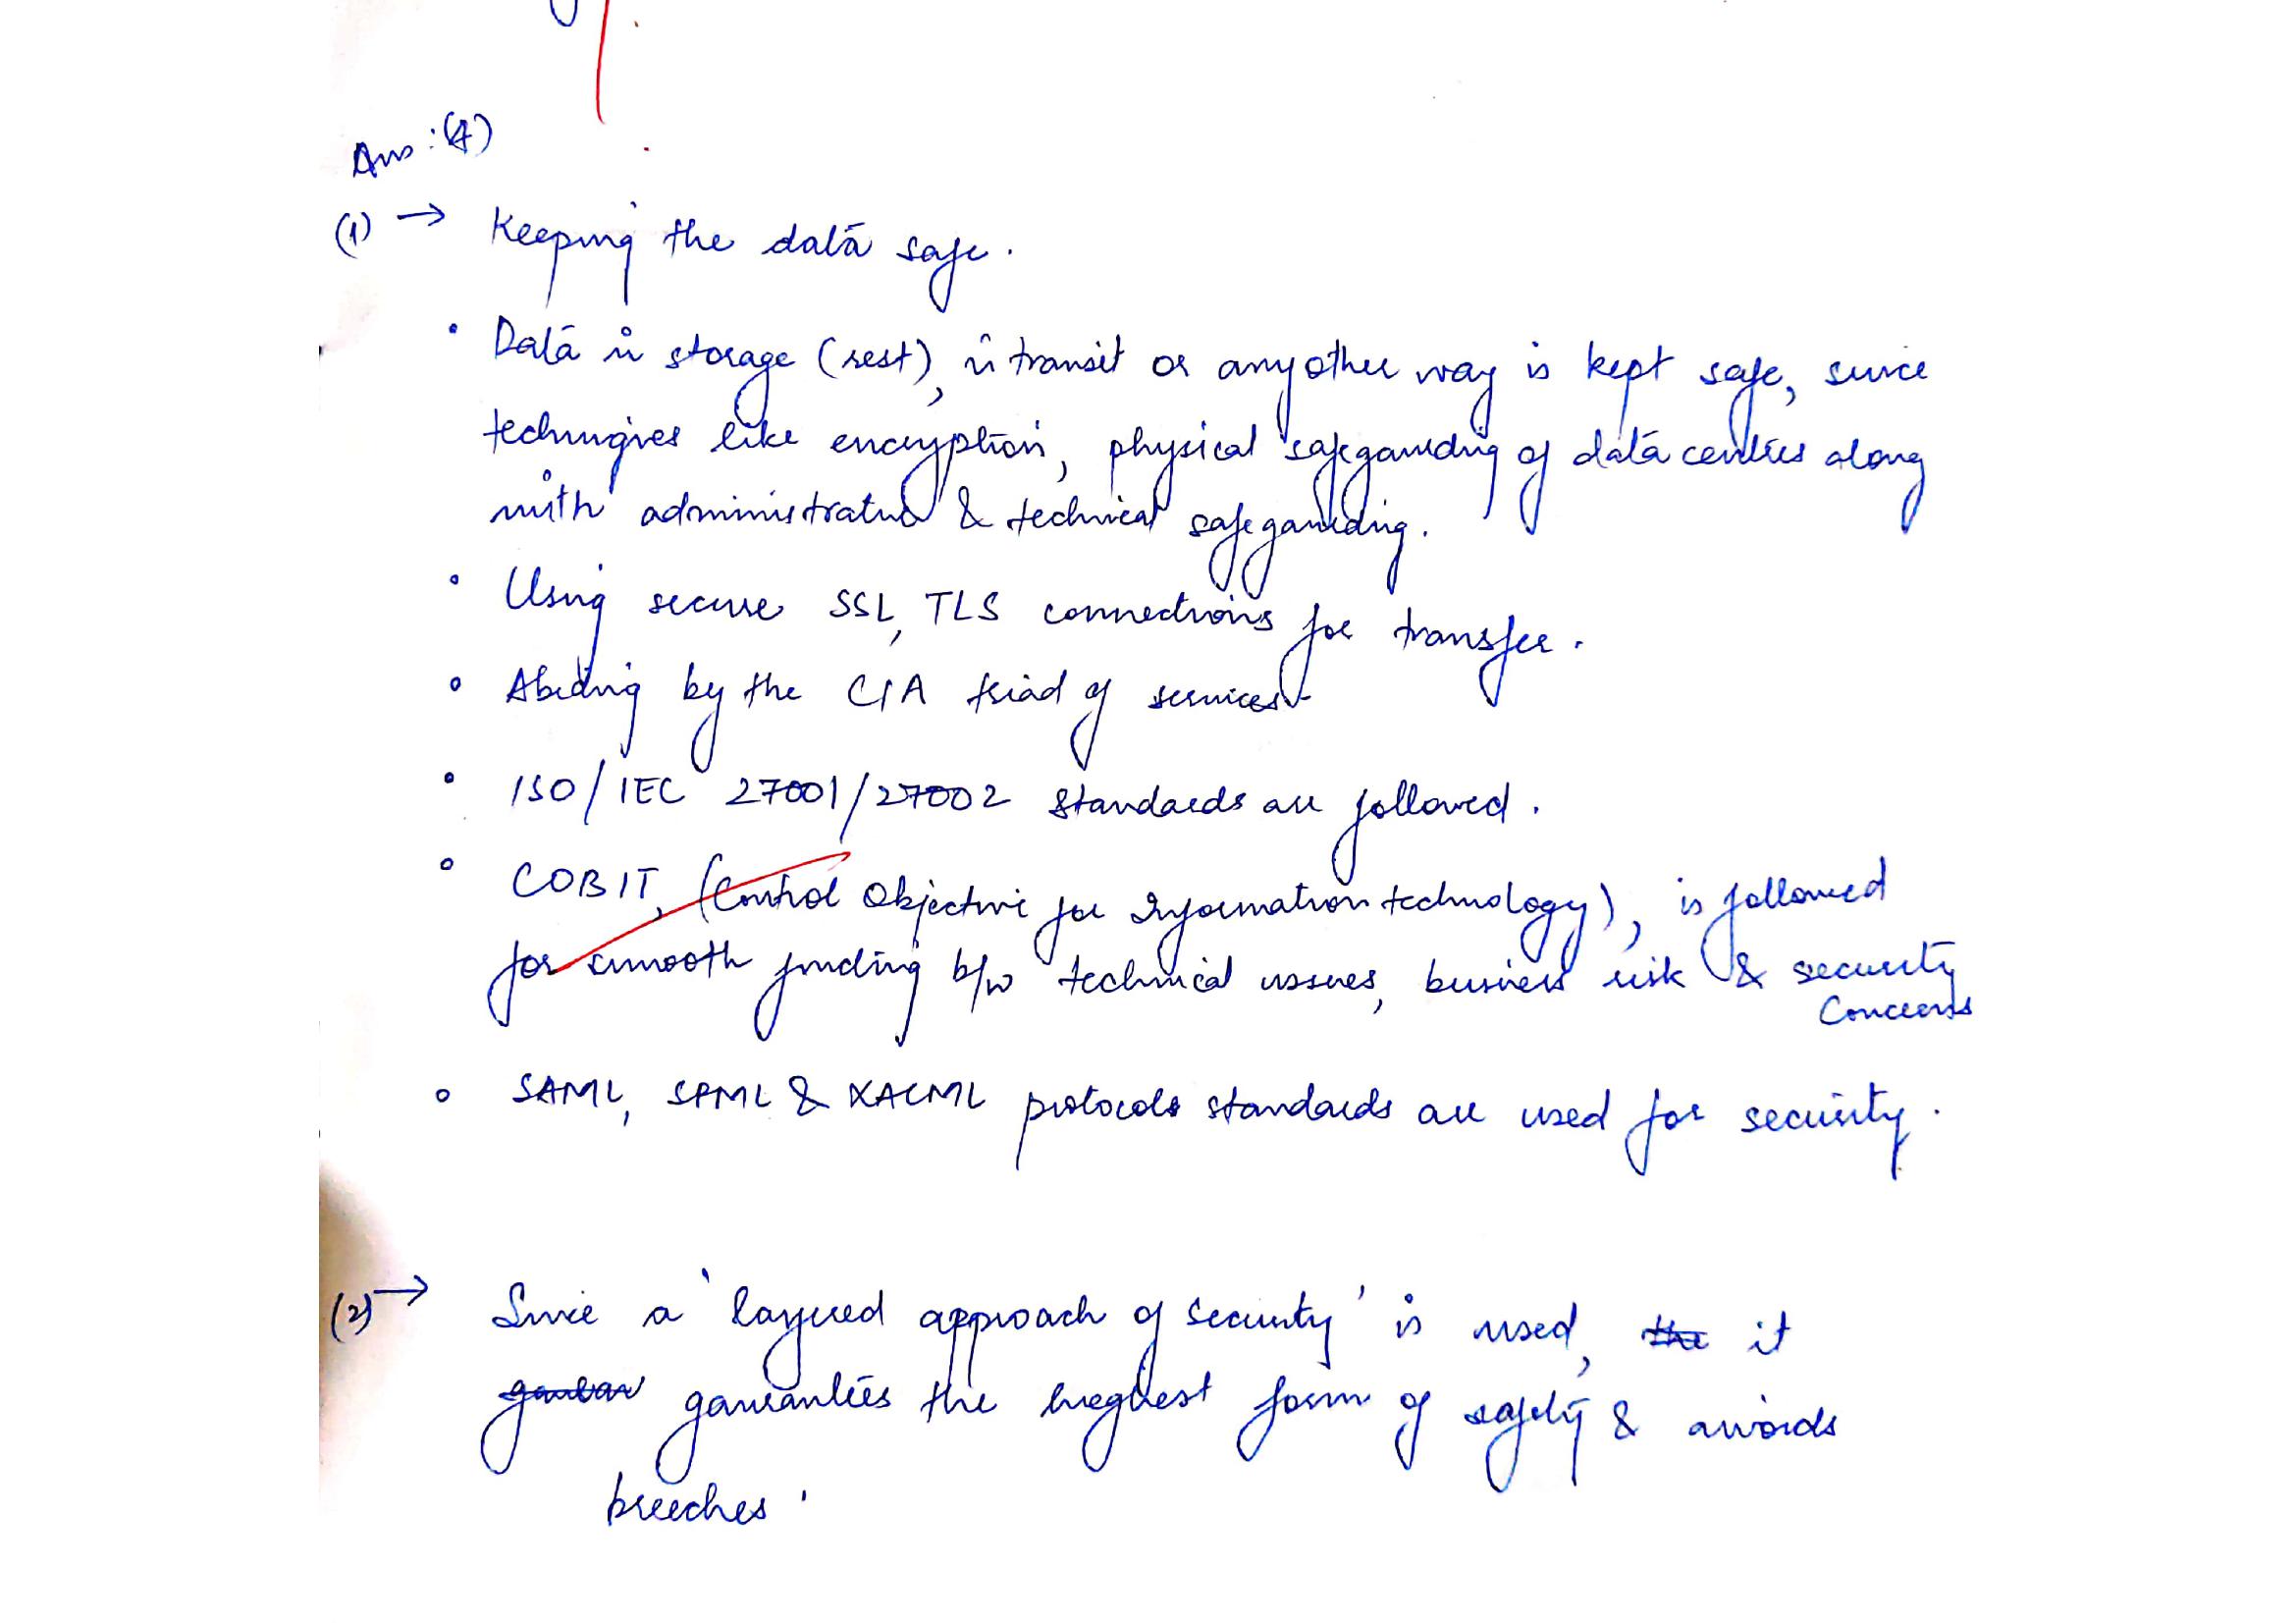 Ans: (4)
(1) → Keeping the data safe.
• Data in storage (rest), in transit or any other way is kept safe, since
techniques like encryption, physical safegaurding of data centres along
with administrative & technical safegaurding.
• Using secure SSL, TLS connections for transfer.
• Abiding by the CIA triad of services
• ISO/IEC 27001/27002 standards are followed.
• COBIT, (Control Objective for Information technology), is followed
for smooth b/w technical issues, business risk & security
Concerns
• SAML, SPML & XACML protocols standards are used for security.
(2) → Since a 'layered approach of security' is used, the it
gaurantees the highest form of safety & avoids
breeches.